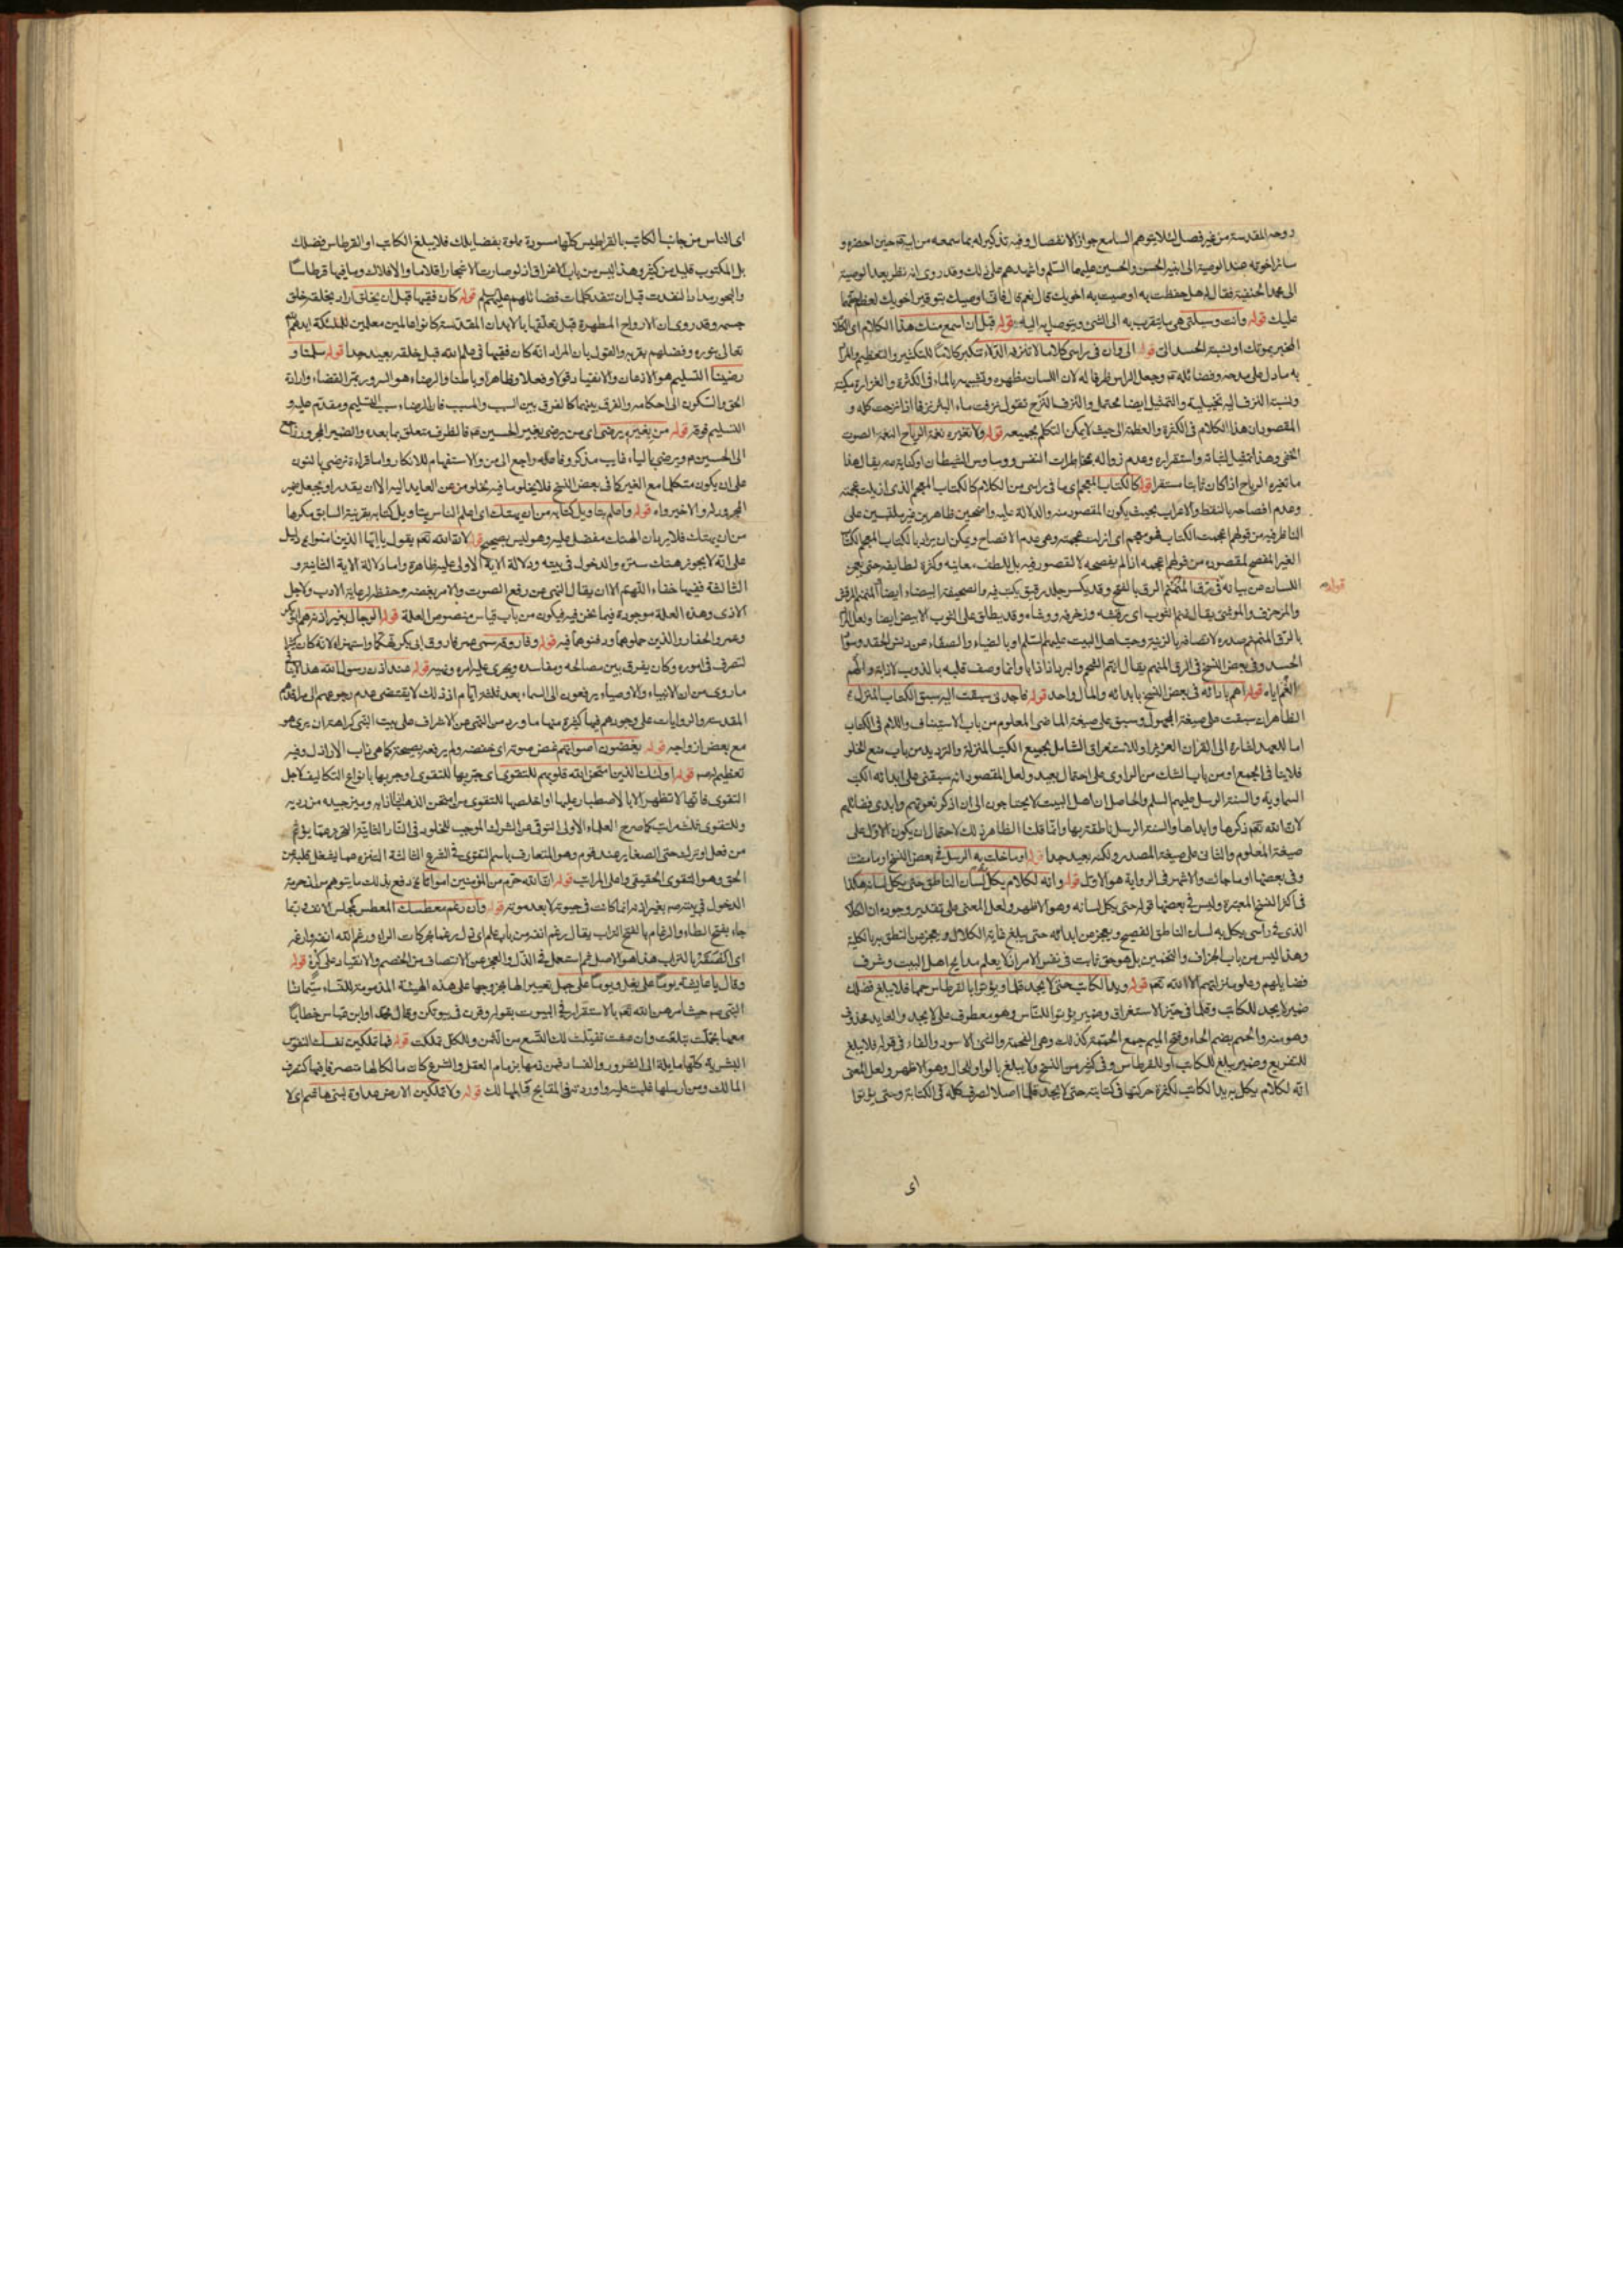 روحه المقدسة من غير فصل لئلا يتوهم السامع جواز الانفصال وفيه تذكير له بما سمعه من ابيه ع حين احضره و
سائر اخوته عند الوصية الى ابنيه الحسن والحسين عليهما السلم واشهدهم على ذلك وقد روى انه نظر بعد الوصية
الى محمد الحنفية فقال له هل حفظت ما اوصيت به اخويك قال نعم قال فانى اوصيك بتوقير اخويك لعظم حقهما
عليك قوله وانت وسيلتى هى ما يتقرب به الى الشئ ويتوصل به اليه قوله قبل ان اسمع منك هذا الكلام اى الكلام
المخبر بموتك او نسبة الحسد الى قوله الى وان فى راسى كلاما لا تنزفه الدلاء تنكير كلاما للتكثير والتعظيم والمراد
به ما دل على مدحه وفضائله ع وجعل الراس ظرفا له لان اللسان مظهره وتشبيهه بالماء فى الكثرة والغزارة مكنية
ونسبة النزف اليه تخييلية والتمثيل ايضا محتمل والنزف النزح تقول نزفت ماء البئر نزفا اذا نزحت كله و
المقصود ان هذا الكلام فى الكثرة والعظمة الى حيث لا يمكن التكلم بجميعه قوله ولا تغيره نغمة الرياح النغمة الصوت
الخفى وهذا تمثيل لثباته واستقراره وعدم زواله بمخاطرات النفس ووساوس الشيطان او كناية عنه يقال هذا
ما تغيره الرياح اذا كان ثابتا مستقرا قوله كالكتاب المعجم اى ما فى راسى من الكلام كالكتاب المعجم الذى ازيلت عجمته
وعدم افصاحه بالنقط والاعراب بحيث يكون المقصود منه والدلالة عليه واضحين ظاهرين غير ملتبسين على
الناظر فيه من قولهم اعجمت الكتاب فهو معجم اى ازلت عجمته وهى عدم الافصاح ويمكن ان يراد بالكتاب المعجم الكتاب
الغير المفصح لمقصوده من قولهم اعجمه اذا لم يفصحه لا لقصور فيه بل للطف معانيه وكثرة لطايفه حتى يعجز
قوله
اللسان عن بيانه فى الرق المنمنم الرق بالفتح وقد يكسر جلد رقيق يكتب فيه والصحيفة البيضاء ايضا المنمنم المرقش
والمزخرف والموشى يقال نمنم الثوب اى رقشه وزخرفه ووشاه وقد يطلق على الثوب الابيض ايضا ولعل المراد
بالرق المنمنم صدره لاتصافه بالزينة وحب اهل البيت عليهم السلم او بالضياء والصفاء عن دنس الحقد وسواد
الحسد وفى بعض النسخ فى الرق المنهم يقال انهم الشحم والبرد اذا ذابا وانما وصف قلبه بالذوب
قوله اهم بادائه فى بعض النسخ بابدائه والمآل واحد قوله فاجدنى سبقت اليه سبق الكتاب المنزل
الظاهر ان سبقت على صيغة المجهول وسبق على صيغة الماضى المعلوم من باب الاستيناف واللام فى الكتاب
اما للعهد اشارة الى القران العزيز او للاستغراق الشامل لجميع الكتب المنزلة والترديد من باب منع الخلو
فلا ينافى الجمع او من باب الشك من الراوى على احتمال بعيد ولعل المقصود انه سبقنى على ابدائه الكتب
السماوية والسنة الرسل عليهم السلم والحاصل ان اهل البيت لا يحتاجون الى ان اذكر نعوتهم وابدى فضائلهم
لان الله تعم ذكرها وابداها والسنة الرسل ناطقة بها وانما قلنا الظاهر ذلك لاحتمال ان يكون الاول على
صيغة المعلوم والثانى على صيغة المصدر ولكنه بعيد جدا قوله او ما خلت به الرسل فى بعض النسخ او ما مضت
وفى بعضها او ما جاءت والاشهر فى الرواية هو الاول قوله وانه لكلام يكل به لسان الناطق حتى يكل لسانه هكذا
فى اكثر النسخ المعتبرة وليس فى بعضها قوله حتى يكل لسانه وهو الاظهر ولعل المعنى على تقدير وجوده ان الكلام
الذى فى راسى يكل به لسان الناطق الفصيح ويعجز عن ابدائه حتى يبلغ غاية الكلال ويعجز عن النطق به بالكلية
وهذا ليس من باب الجزاف والتخمين بل هو حق ثابت فى نفس الامر اذ لا يعلم مدايح اهل البيت وشرف
فضايلهم وعلو منزلتهم الا الله تعم قوله ويد الكاتب حتى لا يجد قلما ويؤتوا بالقرطاس حمما فلا يبلغ فضلك
ضمير لا يجد للكاتب وقلما فى حيز الاستغراق وضمير يؤتوا للناس وهو معطوف على لا يجد والعايد محذوف
وهو منه والحمم بضم الحاء وفتح الميم جمع الحممة كذلك وهى الفحمة والشئ الاسود والفاء فى قوله فلا يبلغ
للتفريع وضمير يبلغ للكاتب او للقرطاس وفى كثير من النسخ ولا يبلغ بالواو للحال وهو الاظهر ولعل المعنى
انه لكلام يكل به يد الكاتب لكثرة حركتها فى كتابته حتى لا يجد قلما اصلا لصرف كله فى الكتابة وحتى يؤتوا
اى
اى الناس من جانب الكاتب بالقراطيس كلها مسودة مملوة بفضايلك فلا يبلغ الكاتب او القرطاس فضلك
بل المكتوب قليل من كثير وهذا ليس من باب الاغراق اذ لو صارت الاشجار اقلاما والافلاك وما فيها قرطاسا
والبحور مدادا لنفدت قبل ان تنفد كلمات فضائلهم عليهم السلم قوله كان فقيها قبل ان يخلق اراد بخلقه خلق
جسمه وقد روى ان الارواح المطهرة قبل تعلقها بالابدان المقدسة كانوا عالمين معلمين للملئكة
تعالى بنوره وفضلهم بقربه والقول بان المراد انه كان فقيها فى علم الله قبل خلقه بعيد جدا قوله سلمنا و
رضينا التسليم هو الاذعان والانقياد قولا وفعلا وظاهرا وباطنا والرضاء هو السرور بمر القضاء وارادة
الحق والسكون الى احكامه والفرق بينهما كالفرق بين السبب والمسبب فان الرضاء سبب التسليم ومقدم عليه و
التسليم فوقه قوله من بغيره يرضى اى من يرضى بغير الحسين ع فالظرف متعلق بما بعده والضمير المجرور راجع
الى الحسين ع ويرضى بالياء غايب مذكر وفاعله راجع الى من والاستفهام للانكار واما قراءة نرضى بالنون
على ان يكون متكلما مع الغير كما فى بعض النسخ فلا يخلو ما فيه لخلو من عن العايد اليه الا ان يقدر او يجعل ضمير
المجرور له والاخير واه قوله واعلم بتاويل كتابه من ان يهتك اى اعلم الناس بتاويل كتابه بقرينة السابق مكرها
من ان يهتك فلا يرد ان الهتك مفضل عليه وهو ليس بصحيح قوله لان الله تعم يقول يا ايها الذين امنوا دليل
على انه لا يجوز هتك ستره والدخول فى بيته ودلالة الاية الاولى عليه ظاهرة واما دلالة الاية الثانية و
الثالثة ففيها خفاء اللهم الا ان يقال النهى عن رفع الصوت والامر بغضه وحفظه لرعاية الادب ولاجل
الاذى وهذه العلة موجودة فيما نحن فيه فيكون من باب قياس منصوص العلة قوله الرجال بغير اذنه هم ابو بكر
وعمر والحفار والذين حملوهما ودفنوهما فيه قوله وفاروقه سمى عمر فاروق ابى بكر تهكما واستهزاء لانه كان كثير
التصرف فى اموره وكان يفرق بين مصالحه ومفاسده ويجرى عليه امره ونهيه قوله عند اذن رسول الله هذا لا ينافى
ما روى من ان الانبياء والاوصياء يرفعون الى السماء بعد ثلثة ايام اذ ذلك لا يقتضى عدم رجوعهم الى مراقدهم
المقدسة والروايات على وجودهم فيها كثيرة منها ما ورد من النهى عن الاشراف على بيت النبى كراهة ان يرى هو
مع بعض ازواجه قوله يغضون اصواتهم غض صوته اى خفضه ولم يرفعه بصيحة كما هى داب الاراذل وفيه
تعظيم له ص قوله اولئك الذين امتحن الله قلوبهم للتقوى اى جربها للتقوى او جربها بانواع التكاليف لاجل
التقوى فانها لا تظهر الا بالاصطبار عليها او اخلصها للتقوى من امتحن الذهب اذا اذابه وميز جيده من رديه
وللتقوى ثلث مراتب كما صرح العلماء الاولى التوقى عن الشرك الموجب للخلود فى النار الثانية التحرز عما يؤثم
من فعل او ترك حتى الصغاير عند قوم وهو المتعارف باسم التقوى فى الشرع الثالثة التنزه عما يشغل قلبه عن
الحق وهو التقوى الحقيقى واعلى المراتب قوله ان الله حرم من المؤمنين امواتا دفع بذلك ما يتوهم من ان حرمة
الدخول فى بيته ص بغير اذنه انما كانت فى حيوته لا بعد موته قوله وان رغم معطسك المعطس كمجلس الانف وربما
جاء بفتح الطاء والرغام بالفتح التراب يقال رغم انفه من باب علم اى ذل رغما بحركات الراء ورغم الله انفه وارغمه
اى الصقه بالتراب هذا هو الاصل ثم استعمل فى الذل والعجز عن الانتصاف من الخصم والانقياد على كره قوله
وقال يا عايشة يوما على بغل ويوما على جمل تعييرا لها بخروجها على هذه الهيئة المذمومة للنساء سيما نساء
النبى ص حيث امرهن الله تعم بالاستقرار فى البيوت بقوله وقرن فى بيوتكن وقال محمد او ابن عباس خطابا
معها تجملت تبغلت وان عشت تفيلت لك التسع من الثمن والكل تملكت قوله فما تملكين نفسك النفوس
البشرية كلها مايلة الى الشرور والفساد فمن زمها بزمام العقل والشرع كان مالكا لها متصرفا فيها كتصرف
المالك ومن ارسلها غلبت عليه واوردته فى المقابح قوله ولا تملكين الارض عداوة لبنى هاشم اى لا